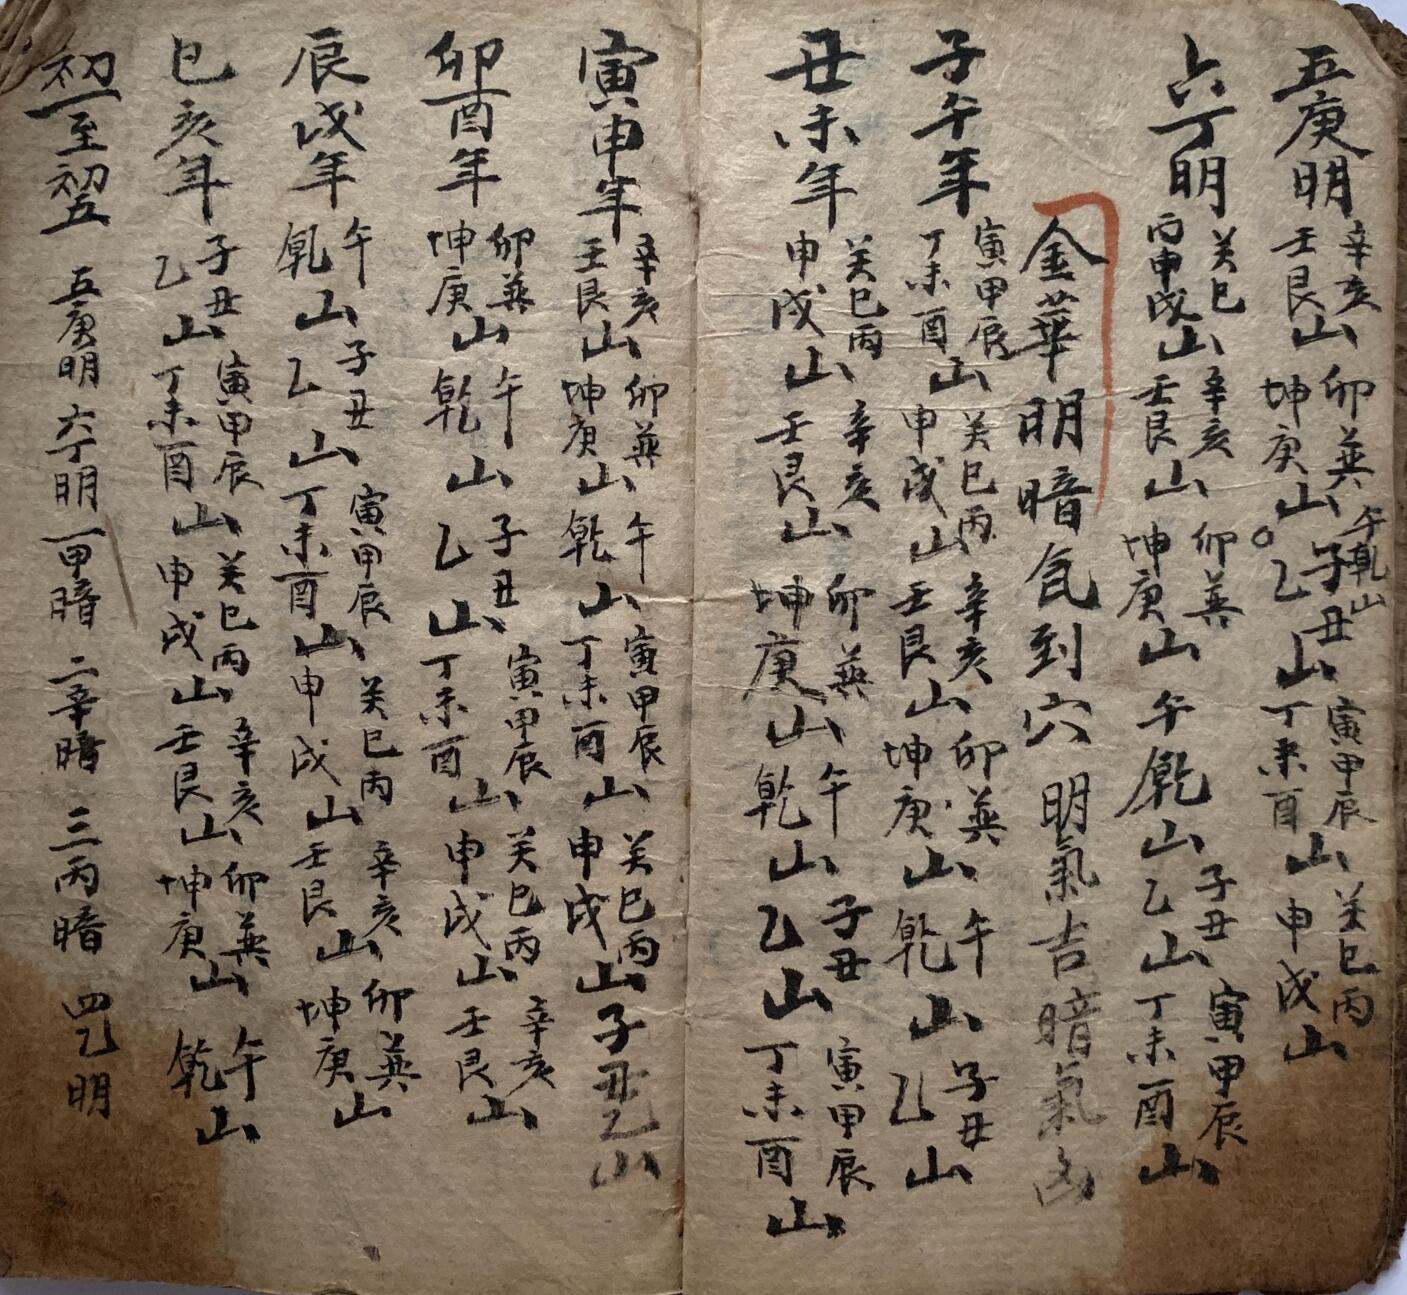 五庚明 辛亥壬艮山 卯巽坤庚山 午乾山 子丑乙山 寅甲辰丁未酉山 癸巳丙申戌山
六丁明 癸巳丙申戌山 辛亥壬艮山 卯巽坤庚山 午乾山 子丑乙山 寅甲辰丁未酉山
金華明暗氣到穴 明氣吉暗氣凶
子午年 寅甲辰丁未酉山 癸巳丙申戌山 辛亥壬艮山 卯巽坤庚山 午乾山 子丑乙山
丑未年 癸巳丙申戌山 辛亥壬艮山 卯巽坤庚山 午乾山 子丑乙山 寅甲辰丁未酉山
寅申年 辛亥壬艮山 卯巽坤庚山 午乾山 寅甲辰丁未酉山 癸巳丙申戌山 子丑乙山
卯酉年 卯巽坤庚山 午乾山 子丑乙山 寅甲辰丁未酉山 癸巳丙申戌山 辛亥壬艮山
辰戌年 午乾山 子丑乙山 寅甲辰丁未酉山 癸巳丙申戌山 辛亥壬艮山 卯巽坤庚山
巳亥年 子丑乙山 寅甲辰丁未酉山 癸巳丙申戌山 辛亥壬艮山 卯巽坤庚山 午乾山
初一至初五 五庚明 六丁明 一甲暗 二辛暗 三丙暗 四乙明